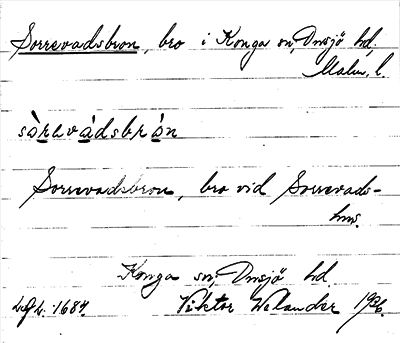 Sorrevadsbron, bro i Konga sn, Onsjö hd,
Malm. l.
sòrevádsbrón
Sorrevadsbron, bro vid Sorrevads-
hus.
Konga sn, Onsjö hd.
1684. Viktor Welander 1936.